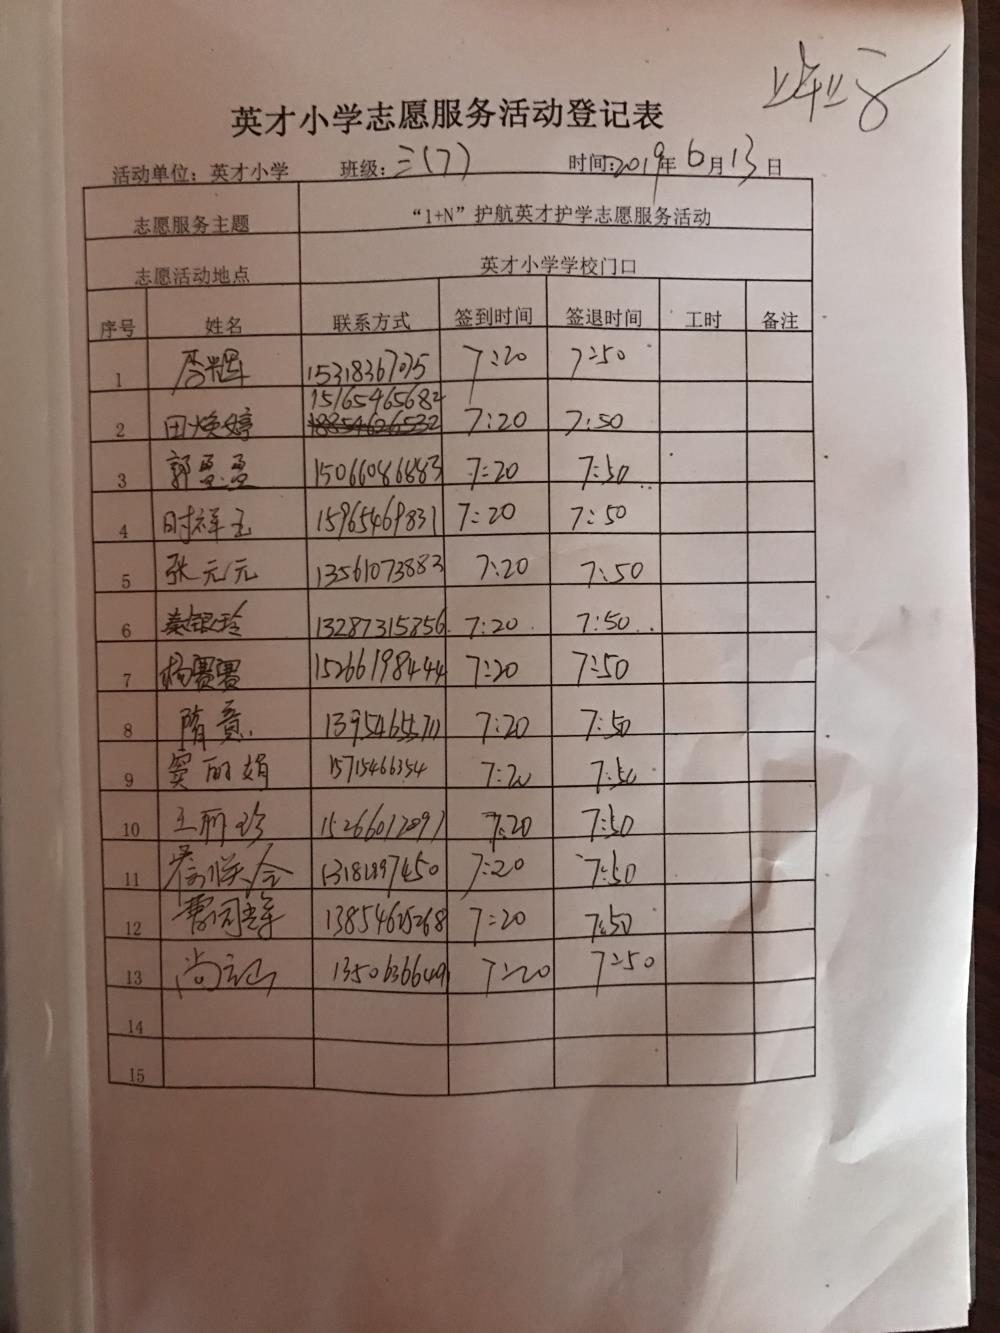 英才小学志愿服务活动登记表
活动单位：英才小学 班级：三(7) 时间:2019年6月13日
志愿服务主题 “1+N”护航英才护学志愿服务活动
志愿活动地点 英才小学学校门口
序号 姓名 联系方式 签到时间 签退时间 工时 备注
1 李辉 15318367035 7:20 7:50
15165465682
2 田焕婷 7:20 7:50
3 郭盈盈 15066086883 7:20 7:50
4 时祥玉 15965469831 7:20 7:50
5 张元元 13561073883 7:20 7:50
6 秦银玲 13287315856 7:20 7:50
7 杨赛赛 15266198444 7:20 7:50
8 隋 13954655711 7:20 7:50
9 窦丽娟 15715466354 7:20 7:50
10 王丽珍 15266012897 7:20 7:50
11 7:20 7:50
12 13854615268 7:20 7:50
13 尚 13506366491 7:20 7:50
14
15